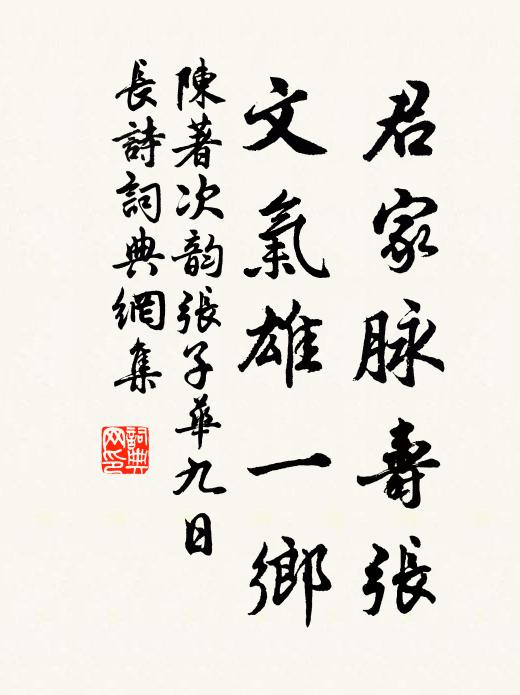 君家脉壽張
文氣雄一鄉
陳著次韵張子華九日
長詩詞典網集
詞典
网印